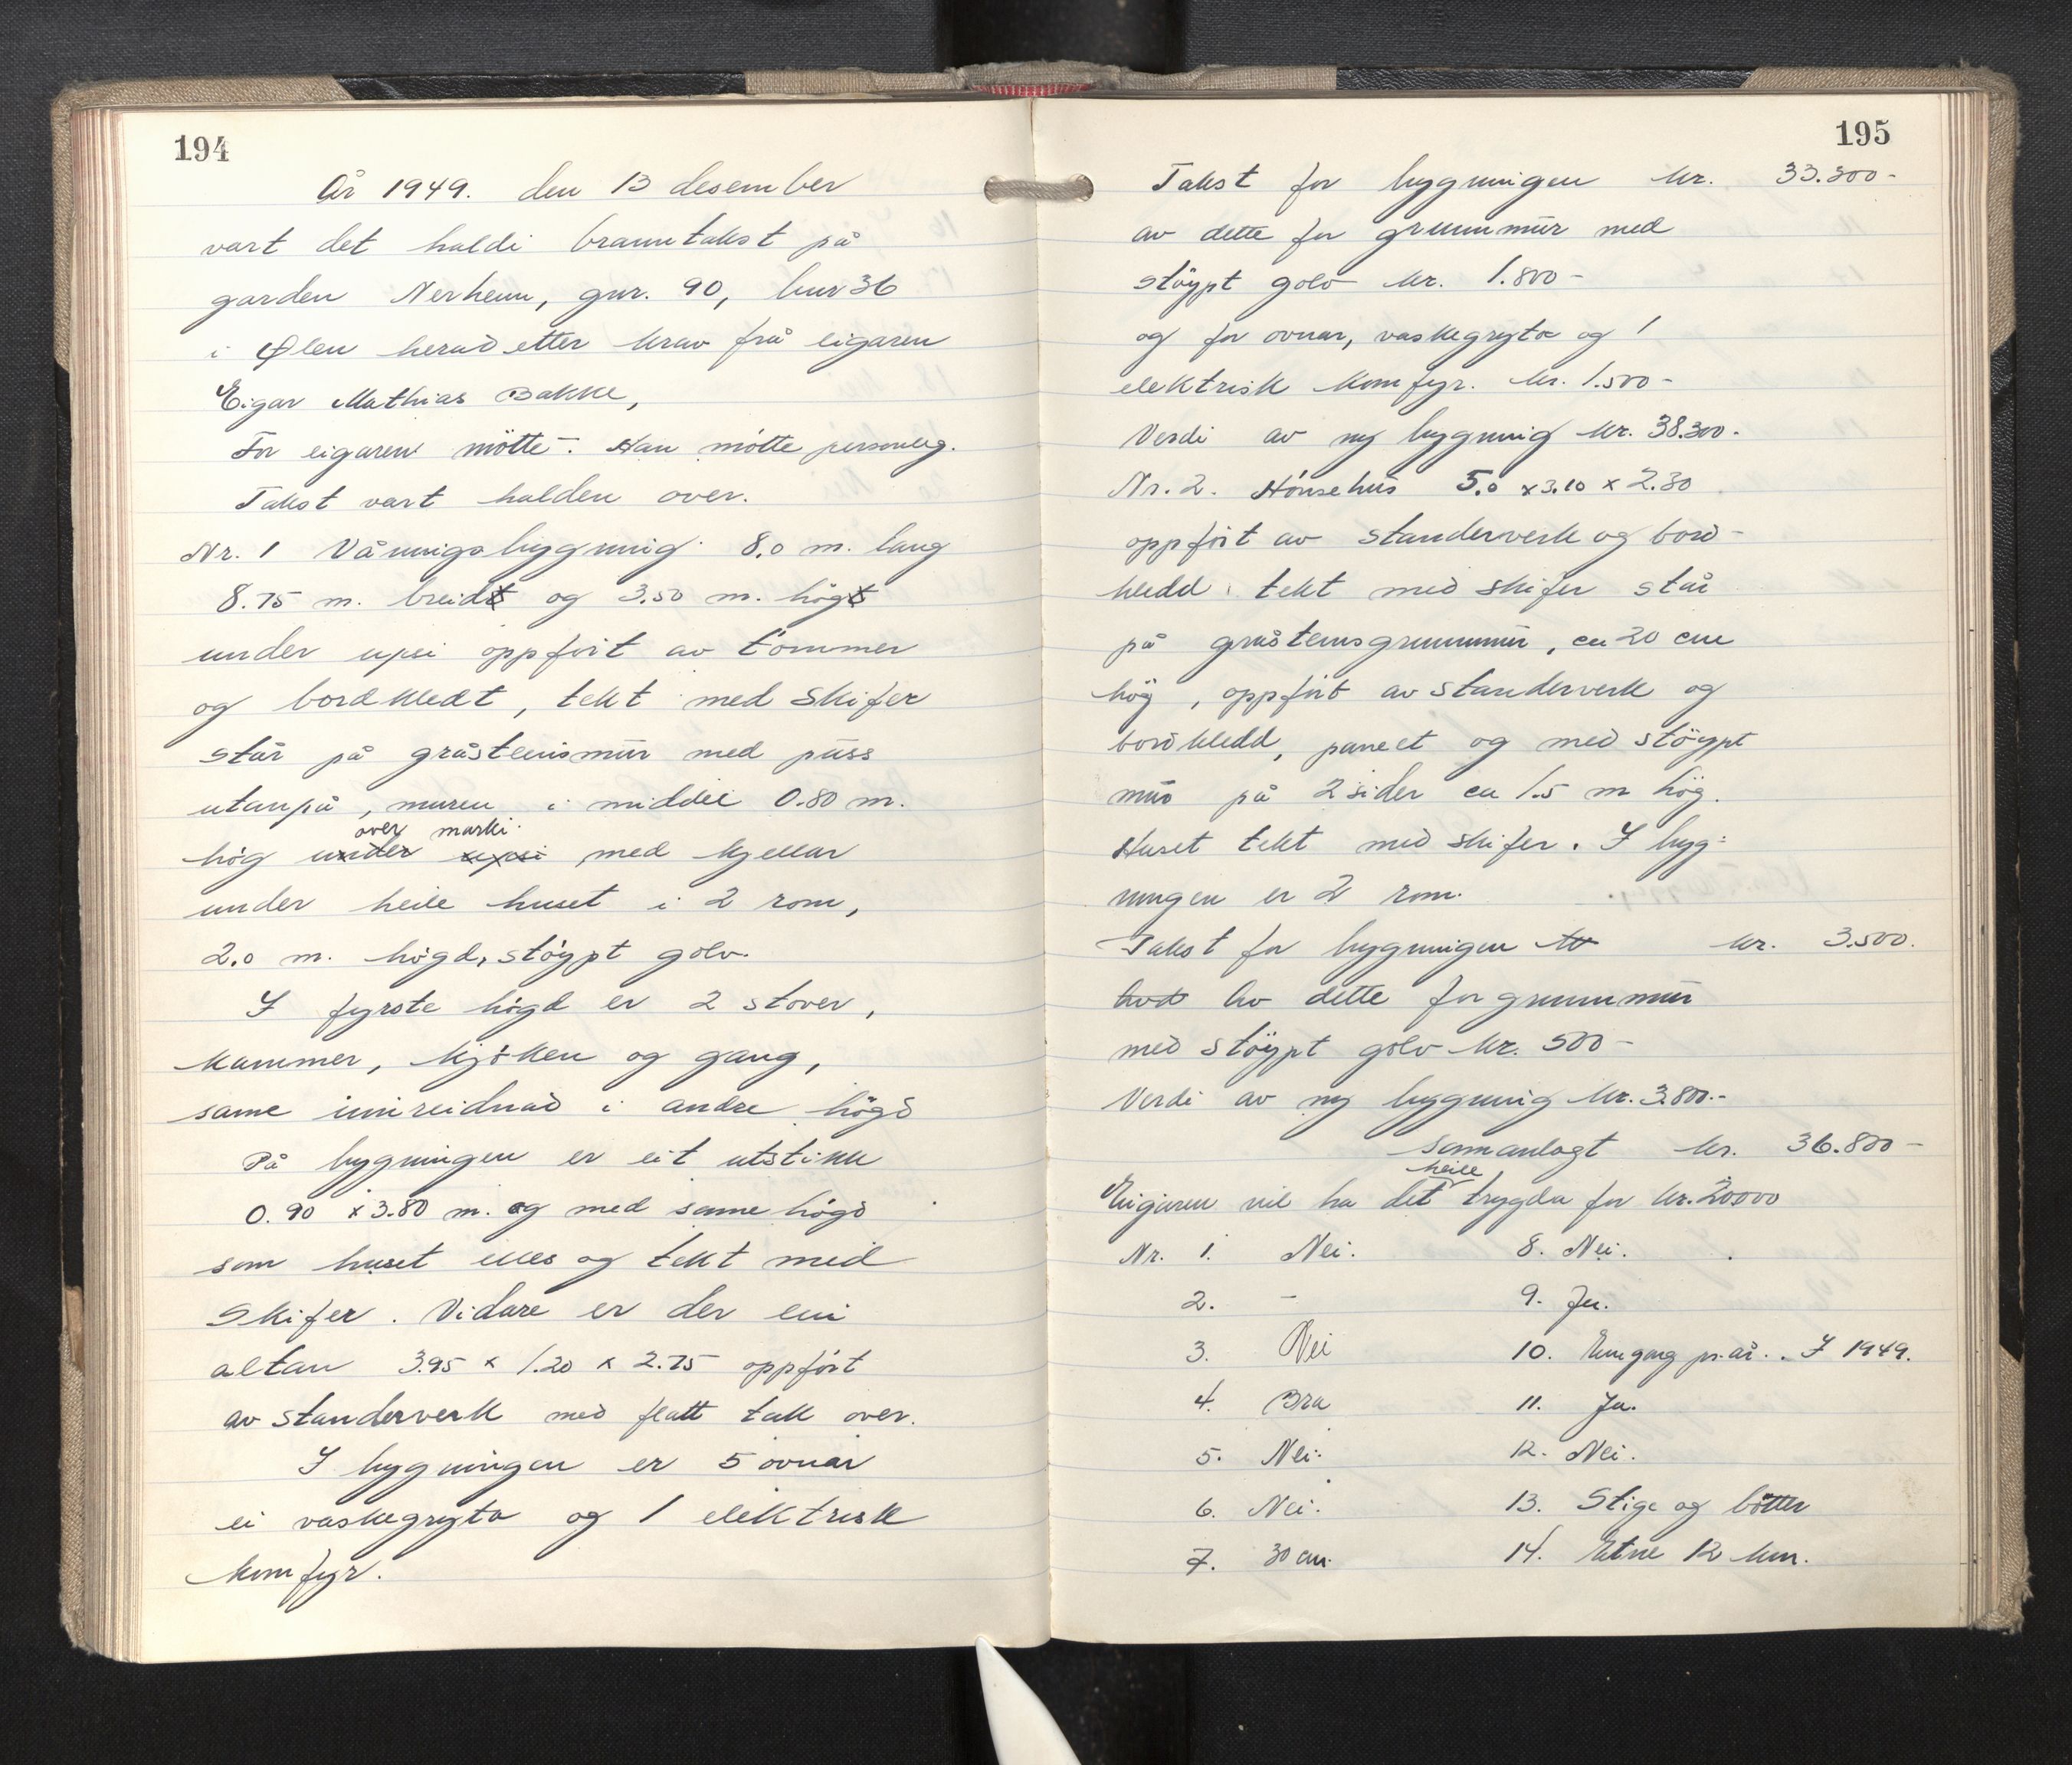 194
År 1949. den 13 desember
vart det haldi branntakst på
garden Nerheim, gnr. 90, bnr 36
i Ølen herad etter krav frå eigaren
Eigar Mathias Bakke,
For eigaren møtte: Han møtte personleg.
Takst vart halden over.
Nr. 1 Våningsbygning 8.0 m. lang
8.75 m. breidt og 3.50 m. høgt
under upsi oppført av tømmer
og bordkledt, tekt med skifer
står på gråsteinsmur med puss
utanpå, muren i middel 0.80 m.
over marki.
høg under upsi med kjellar
under heile huset i 2 rom,
2.0 m. høgd, støypt golv.
I fyrste høgd er 2 stover,
kammer, kjøken og gang,
same innreidnad i andre høgd
På bygningen er eit utstikk
0.90 x 3.80 m. og med same høgd
som huset elles og tekt med
skifer. Vidare er der ein
altan 3.95 x 1.20 x 2.75 oppført
av standerverk med flatt tak over.
I bygningen er 5 ovnar
ei vaskegryta og 1 elektrisk
komfyr.
195
Takst for bygningen kr. 33.300-
av dette for grunnmur med
støypt golv kr. 1.800-
og for ovnar, vaskegryta og 1
elektrisk komfyr. kr. 1.500-
Verdi av ny bygning kr. 38.300.
Nr. 2. Hønsehus 5.0 x 3.10 x 2.30
oppført av standerverk og bord-
kledd tekt med skifer står
på gråsteinsgrunnmur, ca 20 cm
høg, oppført av standerverk og
bordkledd, panelt og med støypt
mur på 2 sider ca 1.5 m høg.
Huset tekt med skifer. I byg-
ningen er 2 rom.
Takst for bygningen kr. 3.500.
Av dette for grunnmur
med støypt golv kr. 500-
Verdi av ny bygning kr. 3.800.-
samanlagt kr. 36.800-
heile
Eigaren vil ha det trygda for kr. 20000
Nr. 1. Nei. 8. Nei.
2. - 9. Ja.
3. Nei 10. Ein gang pr. år. I 1949.
4. Bra 11. Ja.
5. Nei. 12. Nei.
6. Nei. 13. Stige og bøtter
7. 30 cm. 14. Etne 12 km.